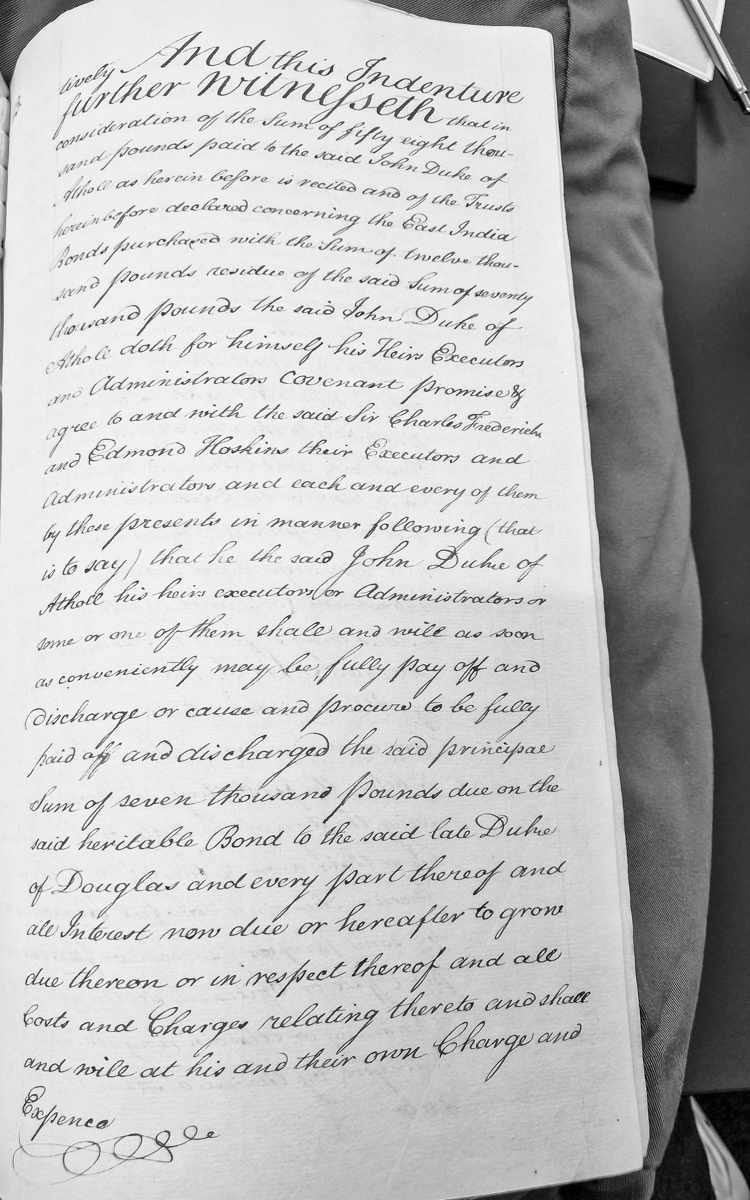 tively And this Indenture
further Witnesseth that in
consideration of the Sum of fifty eight thou-
sand pounds paid to the said John Duke of
Atholl as herein before is recited and of the Trusts
herein before declared concerning the East India
Bonds purchased with the Sum of twelve thou-
sand pounds residue of the said Sum of seventy
thousand pounds the said John Duke of
Atholl doth for himself his Heirs Executors
and Administrators Covenant promise &
agree to and with the said Sir Charles Frederick
and Edmond Hoskins their Executors and
Administrators and each and every of them
by these presents in manner following (that
is to say) that he the said John Duke of
Atholl his heirs executors or Administrators or
some or one of them shall and will as soon
as conveniently may be, fully pay off and
discharge or cause and procure to be fully
paid off and discharged the said principal
Sum of seven thousand Pounds due on the
said heritable Bond to the said late Duke
of Douglas and every part thereof and
all Interest now due or hereafter to grow
due thereon or in respect thereof and all
Costs and Charges relating thereto and shall
and will at his and their own Charge and
Expence